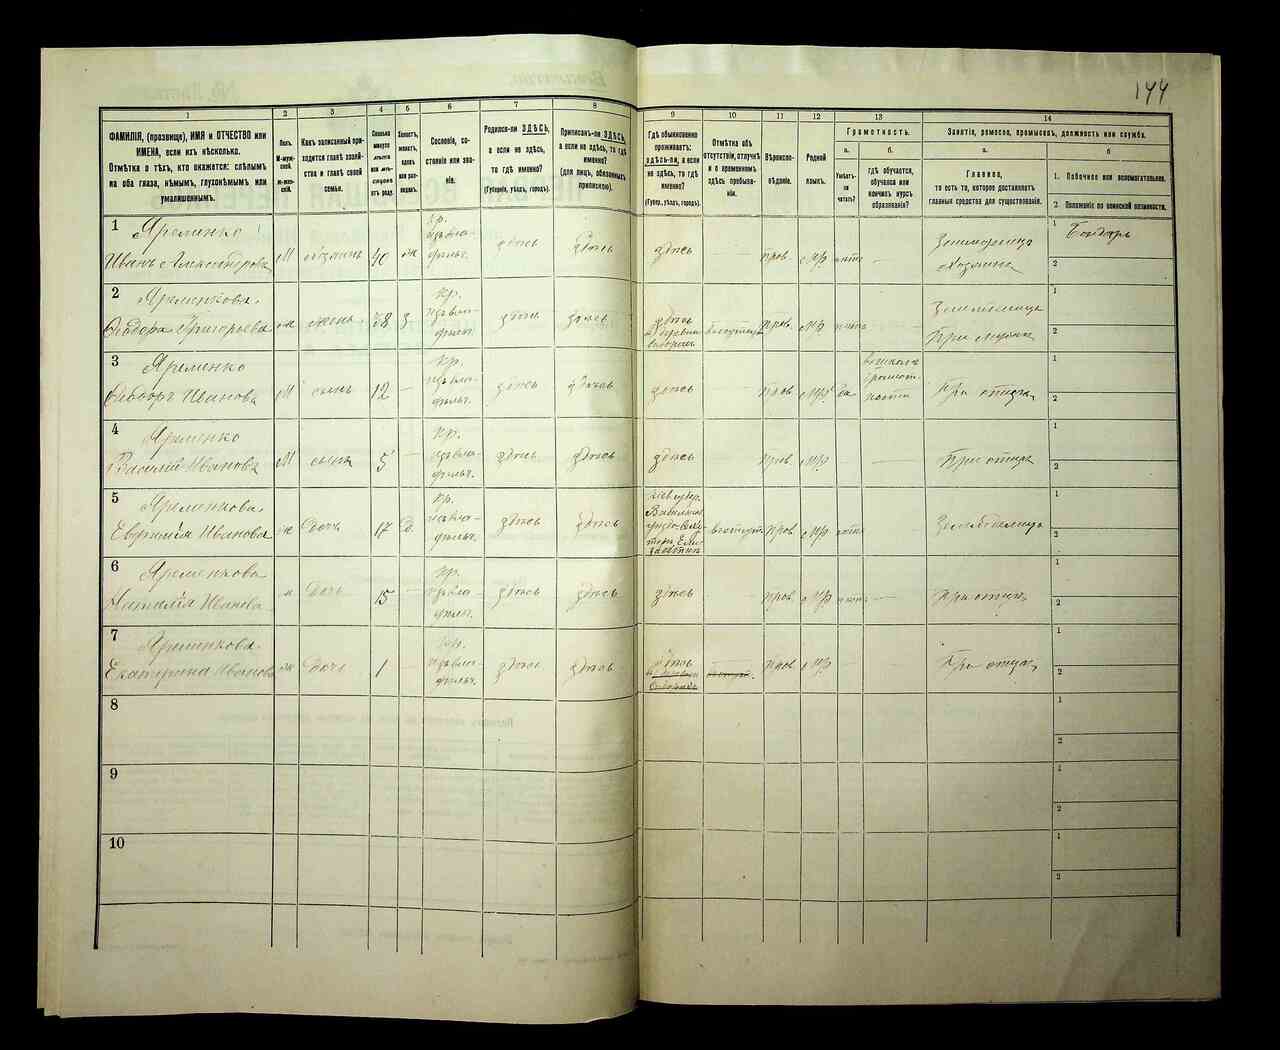 144
1
2
3
4
5
6
7
8
9
10
11
12
13
14
ФАМИЛІЯ, (прозвище), ИМЯ и ОТЧЕСТВО или
ИМЕНА, если ихъ нѣсколько.
Отмѣтка о тѣхъ, кто окажется: слѣпымъ
на оба глаза, нѣмымъ, глухонѣмымъ или
умалишеннымъ.
Полъ.
М-муж-
ской.
ж-жен-
скій.
Какъ записанный при-
ходится главѣ хозяй-
ства и главѣ своей
семьи.
Сколько
минуло
лѣтъ
или мѣ-
сяцевъ
отъ роду.
Холостъ,
женатъ,
вдовъ
или раз-
веденъ.
Сословіе, со-
стояніе или зва-
ніе.
Родился-ли ЗДѢСЬ,
а если не здѣсь,
то гдѣ именно?
(Губернія, уѣздъ, городъ).
Приписанъ-ли ЗДѢСЬ,
а если не здѣсь, то гдѣ
именно?
(для лицъ, обязанныхъ
припискою).
Гдѣ обыкновенно
проживаетъ:
здѣсь-ли, а если
не здѣсь, то гдѣ
именно?
(Губер., уѣздъ, городъ).
Отмѣтка объ
отсутствіи, отлучкѣ
и о временномъ
здѣсь пребыва-
ніи.
Вѣроиспо-
вѣданіе.
Родной
языкъ.
Грамотность.
а.
б.
Умѣетъ-
ли
читать?
гдѣ обучается,
обучался или
кончилъ курсъ
образованія?
Занятія, ремесло, промыселъ, должность или служба.
а.
б
Главное,
то есть то, которое доставляетъ
главныя средства для существованія.
1. Побочное или вспомогательное.
2. Положеніе по воинской повинности.
1
Яременко
Иванъ Александровъ
М
хозяинъ
40
ж
Кр.
здѣсь
здѣсь
здѣсь
—
прав.
М.Р
нѣтъ
—
Хозяинъ
1
Бондарь
2
2
Яременкова
Ѳеодора Григорьева
ж
жена
38
з
Кр.
здѣсь
здѣсь
здѣсь
прав.
М.Р
нѣтъ
—
При мужѣ
1
2
3
Яременко
Ѳеодоръ Ивановъ
М
сынъ
12
—
Кр.
здѣсь
здѣсь
здѣсь
—
прав.
М.Р
Да
При отцѣ
1
2
4
Яременко
Василій Ивановъ
М
сынъ
5
—
Кр.
здѣсь
здѣсь
здѣсь
прав.
М.Р
—
—
При отцѣ
1
2
5
Яременкова
Евфимія Иванова
ж
Дочь
17
Д
Кр.
здѣсь
здѣсь
прав.
М.Р
нѣтъ
—
1
2
6
Яременкова
Наталія Иванова
ж
Дочь
15
—
Кр.
здѣсь
здѣсь
здѣсь
—
прав.
М.Р
нѣтъ
—
При отцѣ
1
2
7
Яременкова
Екатерина Иванова
ж
Дочь
1
—
Кр.
здѣсь
здѣсь
здѣсь
прав
М.Р
—
—
При отцѣ
1
2
8
1
2
9
1
2
10
1
2